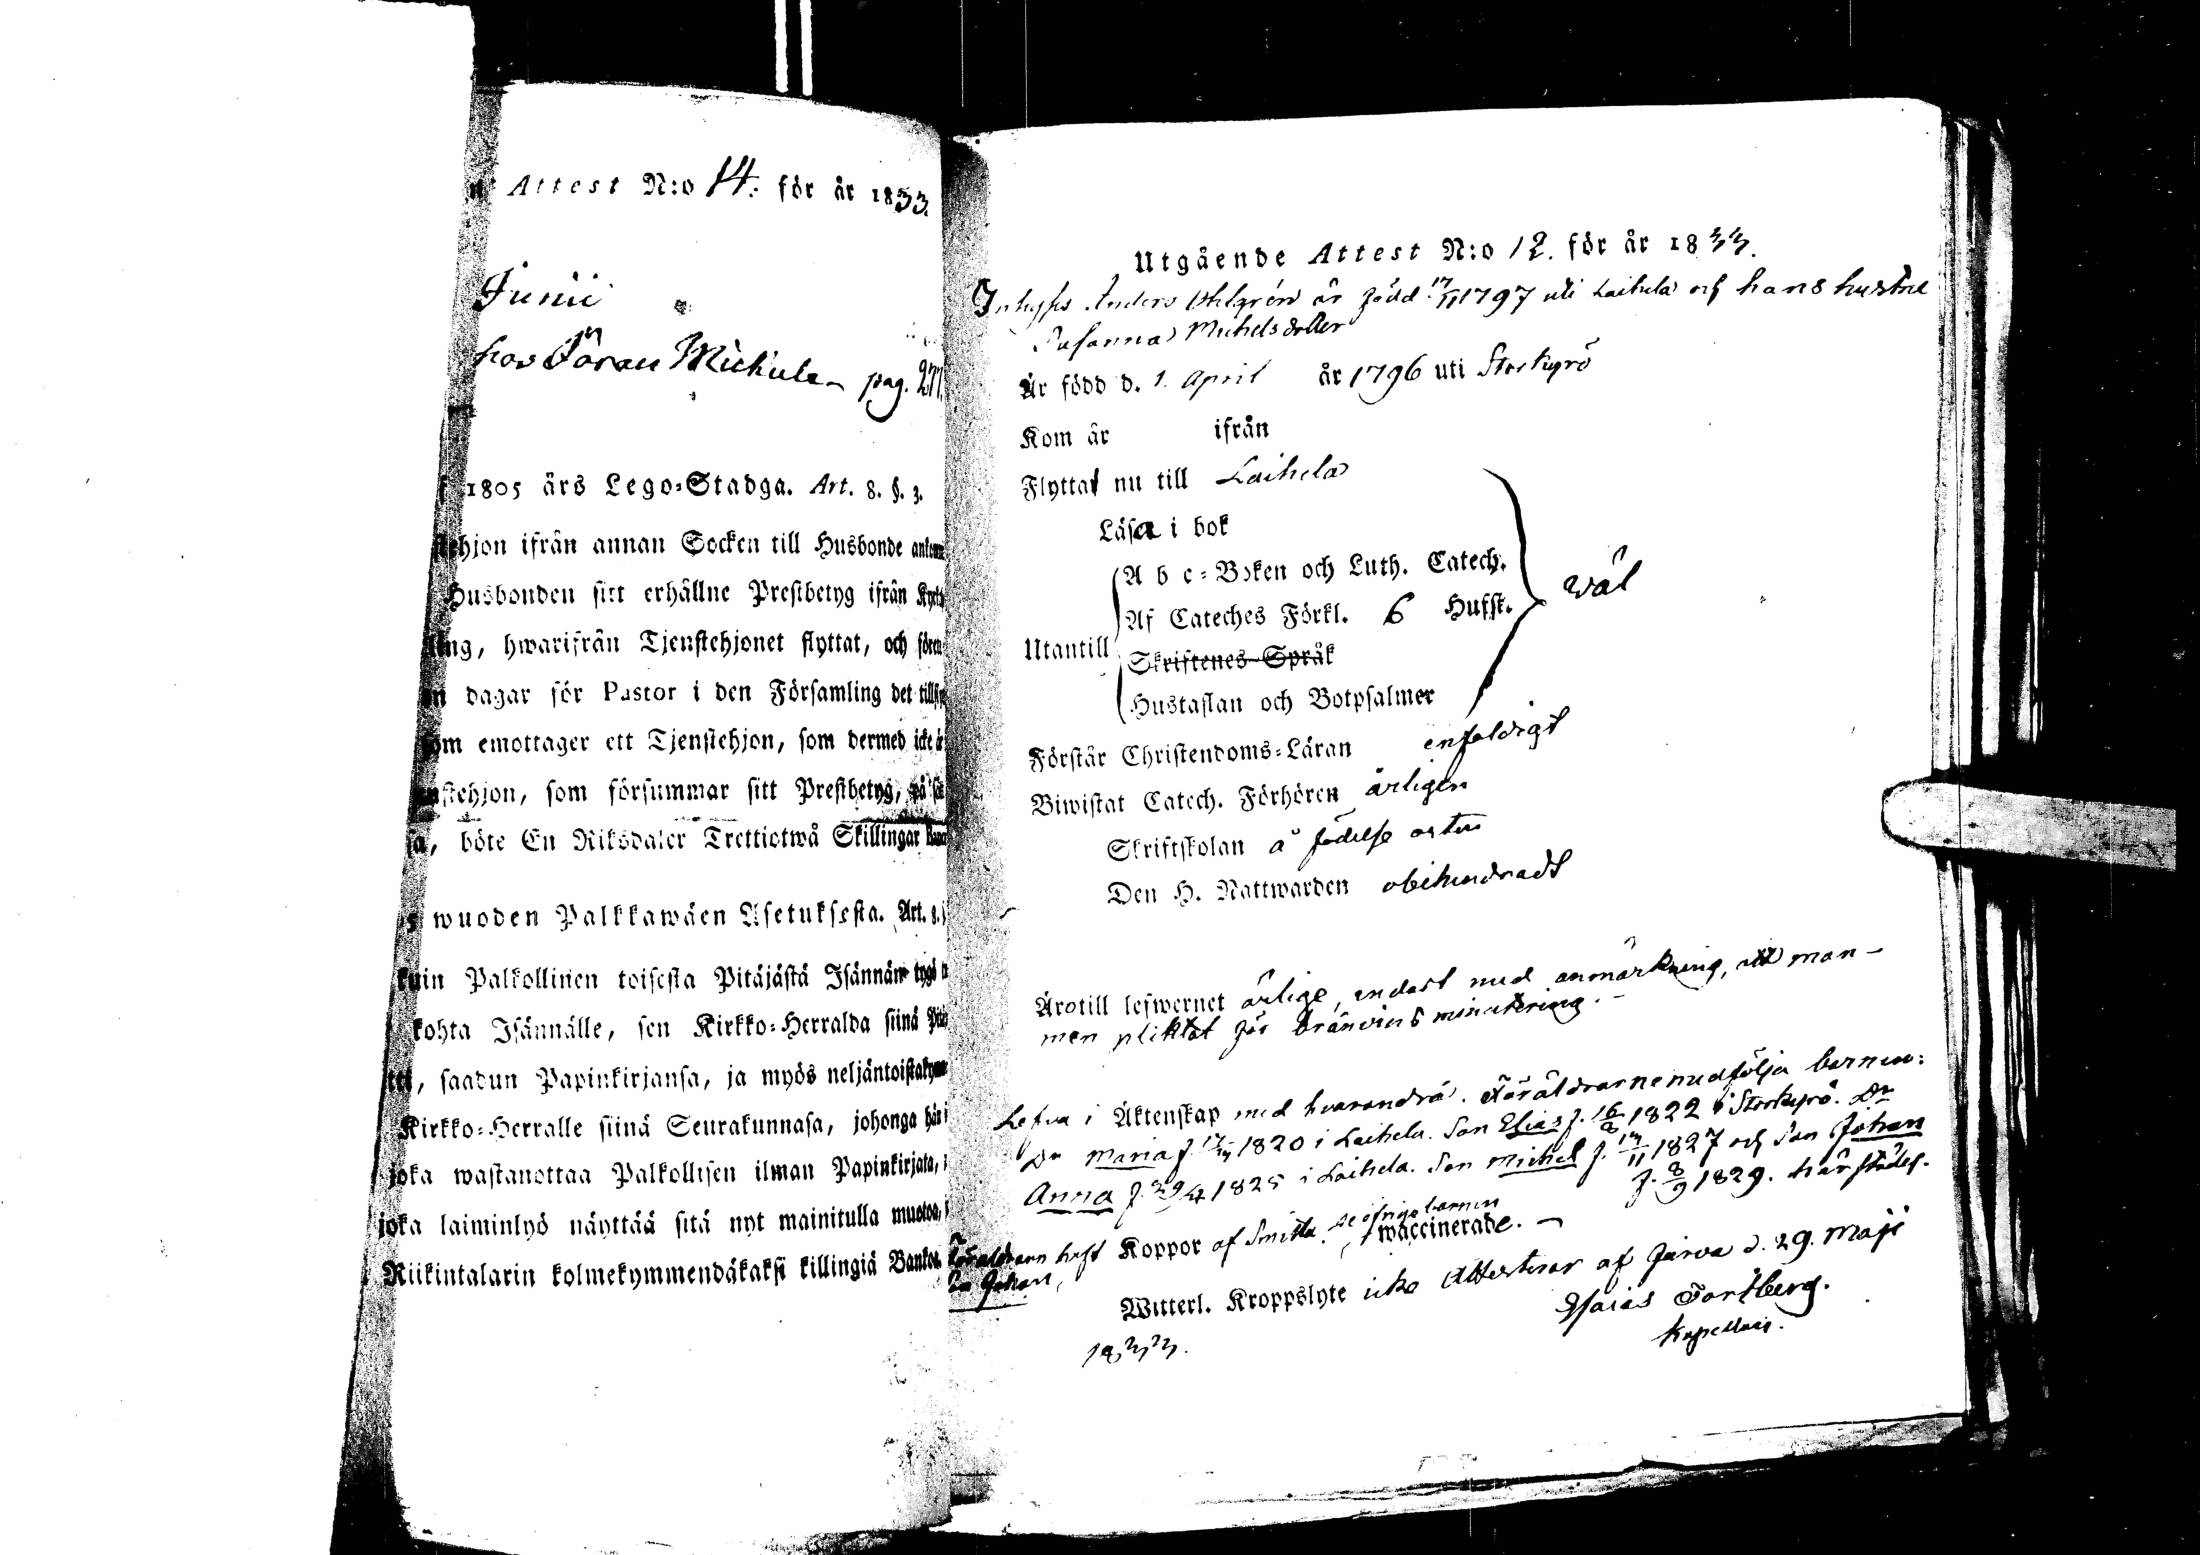 Attest N:o 14. för år 1833.
Junii
hos Jöran Michula pag. 277.
1805 års Lego-Stadga. Art. 8. §. 3.
stehjon ifrån annan Socken till Husbonde
Husbonden sitt erhållne Prestbetyg ifrån
ling, hwarifrån Tjenstehjonet flyttat, och
dagar för Pastor i den Församling det
som emottager ett Tjenstehjon, som dermed icke
nstehjon, som försummar sitt Prestbetyg, på
böte En Riksdaler Trettiotwå Skillingar
wuoden Palkkawäen Asetuksesta. Art. 8.
kuin Palkollinen toisesta Pitäjästä Isännän tygö
kohta Isännälle, sen Kirkko-Herralda siinä
saadun Papinkirjansa, ja myös neljäntoistakym
Kirkko-Herralle siinä Seurakunnasa, johonga hän
joka wastanottaa Palkollisen ilman Papinkirjata,
joka laiminlyö näyttää sitä nyt mainitulla muotoa,
Riikintalarin kolmekymmendäkaksi killingiä Bankos.
Utgående Attest N:o 12. för år 1833.
Inhyses Anders Ohlgrén är född 17/11 1797 uti Laihela och hans hustru
Susanna Michelsdotter
Är född d. 1. April år 1796 uti Storkyrö
Kom år ifrån
Flyttat nu till Laihela
Läsa i bok
A b c-Boken och Luth. Catech.
Af Cateches Förkl. 6 Hufst.
wäl
Utantill
Skriftenes Språk
Hustaflan och Botpsalmer
Förstår Christendoms-Läran enfaldigt
Biwistat Catech. Förhören årligen
Skriftskolan å födelse orten
Den H. Nattwarden obehindradt
Ärotill lefwernet ärlige, endast med anmärkning, att man-
nen pliktat för bränvins minutering.-
Lefva i Äktenskap med hvarandra. Föräldrarne medfölja barnen:
Dr Maria f. 1820 i Laihela. Son Elias f. 16/8 1822 i Storkyrö. Dr
Anna f. 29/4 1825 i Laihela. Son Michel f. 17/11 1827 och Son Johan
f. 8/9 1829. härstädes.
Föräldrarn haft Koppor af Smitta. de öfriga barnen waccinerade. -
Son Johan,
Witterl. Kroppslyte icke Attesterar af Jurva d. 29. Maji
1833.
Esaias Fortberg.
Kapellan.